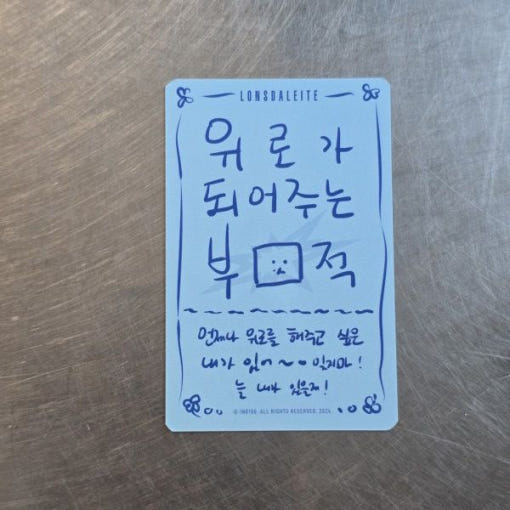 LONSDALEITE
위로가
되어주는
부적
언제나 위로를 해주고 싶은
내가 있어~~ 잊지마!
늘 내가 있을게!
© INB100. ALL RIGHTS RESERVED. 2024